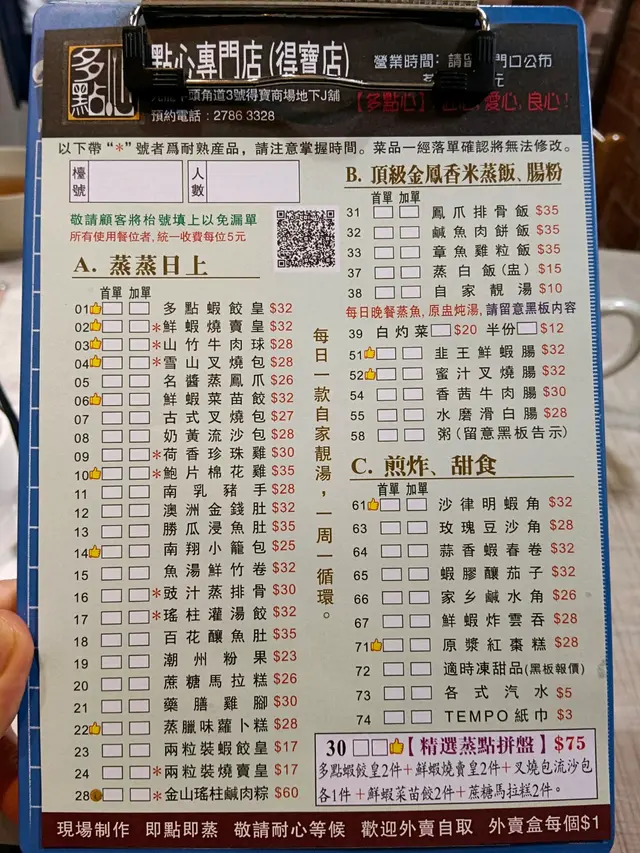 多點心
點心專門店(得寶店)
牛頭角道3號得寶商場地下J舖
預約電話：2786 3328
營業時間：請留 門口公布
【多點心】 愛心，良心！
以下帶“*”號者爲耐熟産品，請注意掌握時間。菜品一經落單確認將無法修改。
檯號
人數
敬請顧客將枱號填上以免漏單
所有使用餐位者，統一收費每位5元
A. 蒸蒸日上
首單 加單
01 多點蝦餃皇 $32
02 *鮮蝦燒賣皇 $32
03 *山竹牛肉球 $28
04 *雪山叉燒包 $28
05 名醬蒸鳳爪 $26
06 鮮蝦菜苗餃 $32
07 古式叉燒包 $27
08 奶黃流沙包 $28
09 *荷香珍珠雞 $30
10 *鮑片棉花雞 $35
11 南乳豬手 $28
12 澳洲金錢肚 $32
13 勝瓜浸魚肚 $35
14 南翔小籠包 $25
15 魚湯鮮竹卷 $32
16 *豉汁蒸排骨 $30
17 *瑤柱灌湯餃 $32
18 百花釀魚肚 $35
19 潮州粉果 $23
20 蔗糖馬拉糕 $26
21 藥膳雞腳 $30
22 蒸臘味蘿卜糕 $28
23 兩粒裝蝦餃皇 $17
24 *兩粒裝燒賣皇 $17
28 *金山瑤柱鹹肉粽 $60
每日一款自家靚湯，一周一循環。
B. 頂級金鳳香米蒸飯、腸粉
首單 加單
31 鳳爪排骨飯 $35
32 鹹魚肉餅飯 $35
33 章魚雞粒飯 $35
37 蒸白飯(盅) $15
38 自家靚湯 $10
每日晚餐蒸魚，原盅炖湯，請留意黑板内容
39 白灼菜 $20 半份 $12
51 韭王鮮蝦腸 $32
52 蜜汁叉燒腸 $32
54 香茜牛肉腸 $30
55 水磨滑白腸 $28
58 粥(留意黑板告示)
C. 煎炸、甜食
首單 加單
61 沙律明蝦角 $32
63 玫瑰豆沙角 $28
64 蒜香蝦春卷 $32
65 蝦膠釀茄子 $32
66 家乡鹹水角 $26
67 鮮蝦炸雲吞 $28
71 原漿紅棗糕 $28
72 適時凍甜品(黑板報價)
73 各式汽水 $5
74 TEMPO紙巾 $3
30 【精選蒸點拼盤】$75
多點蝦餃皇2件+鮮蝦燒賣皇2件+叉燒包流沙包
各1件+鮮蝦菜苗餃2件+蔗糖馬拉糕2件。
現場制作 即點即蒸 敬請耐心等候 歡迎外賣自取 外賣盒每個$1